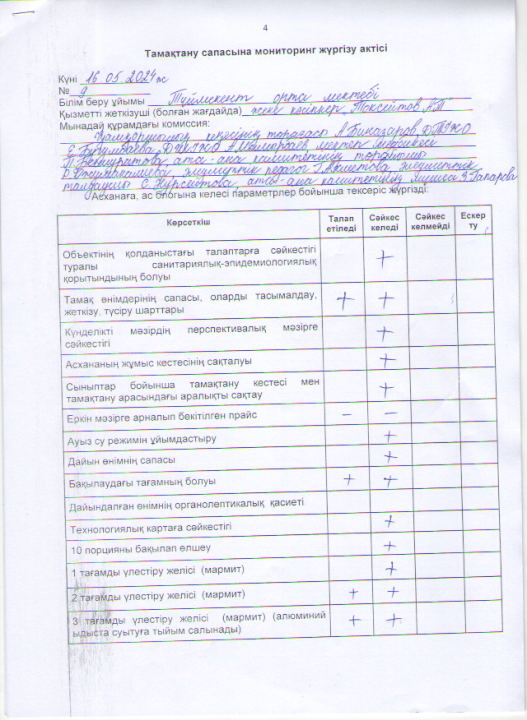 4
Тамақтану сапасына мониторинг жүргізу актісі
Күні 16 05 2024 ж
№ 9
Білім беру ұйымы Түймекент орта мектебі
Қызметті жеткізуші (болған жағдайда) жеке кәсіпкер
Мынадай құрамдағы комиссия:
Қамқоршылық кеңесінің төрағасы
мектеп
ата-ана комитетінің
педагог
ата-ана комитетінің мүшесі
Асханаға, ас блогына келесі параметрлер бойынша тексеріс жүргізді:
Көрсеткіш Талап етіледі Сәйкес келеді Сәйкес келмейді Ескерту
Объектінің қолданыстағы талаптарға сәйкестігі туралы санитариялық-эпидемиологиялық қорытындының болуы +
Тамақ өнімдерінің сапасы, оларды тасымалдау, жеткізу, түсіру шарттары + +
Күнделікті мәзірдің перспективалық мәзірге сәйкестігі +
Асхананың жұмыс кестесінің сақталуы +
Сыныптар бойынша тамақтану кестесі мен тамақтану арасындағы аралықты сақтау +
Еркін мәзірге арналып бекітілген прайс – –
Ауыз су режимін ұйымдастыру +
Дайын өнімнің сапасы +
Бақылаудағы тағамның болуы + +
Дайындалған өнімнің органолептикалық қасиеті
Технологиялық картаға сәйкестігі +
10 порцияны бақылап өлшеу +
1 тағамды үлестіру желісі (мармит) +
2 тағамды үлестіру желісі (мармит) + +
3 тағамды үлестіру желісі (мармит) (алюминий ыдыста суытуға тыйым салынады) + +